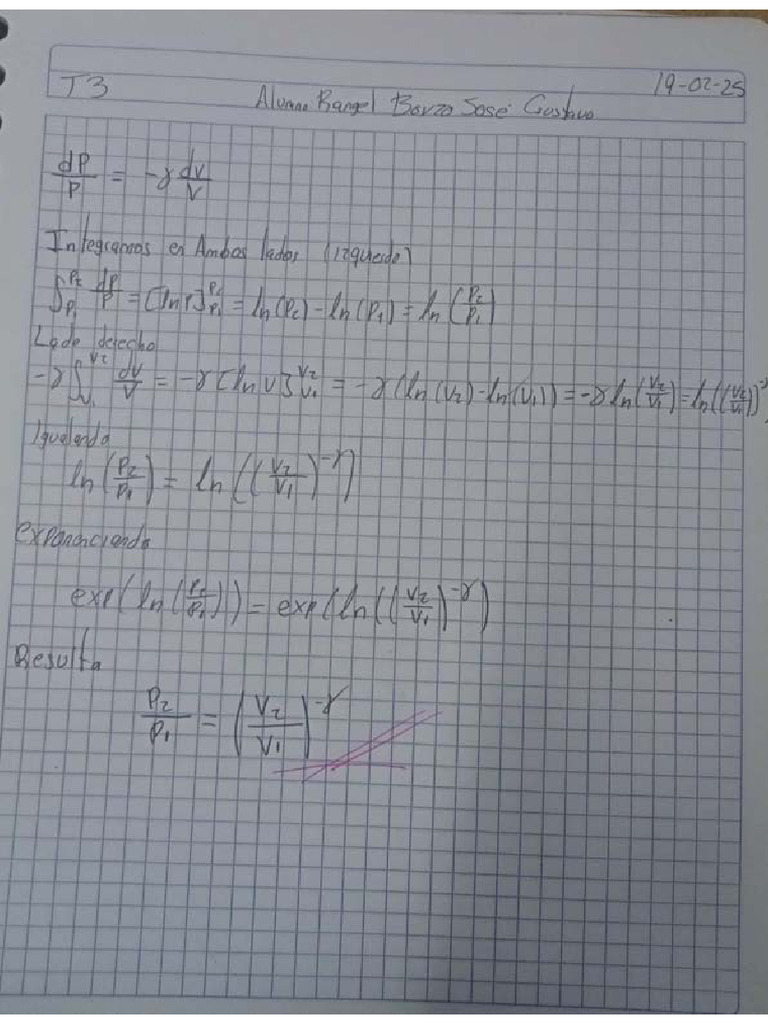 T3
19-02-25
Alumno Rangel José Gustavo
dP/P = -γ dv/V
Integramos en Ambos lados (izquierdo)
∫_{P1}^{P2} dP/P = [ln P]_{P1}^{P2} = ln(P2) - ln(P1) = ln(P2/P1)
Lado derecho
-γ ∫_{V1}^{V2} dv/V = -γ [ln V]_{V1}^{V2} = -γ (ln(V2) - ln(V1)) = -γ ln(V2/V1) = ln((V2/V1)^{-γ})
Igualando
ln(P2/P1) = ln((V2/V1)^{-γ})
exponenciando
exp(ln(P2/P1)) = exp(ln((V2/V1)^{-γ})
Resulta
P2/P1 = (V2/V1)^{-γ}